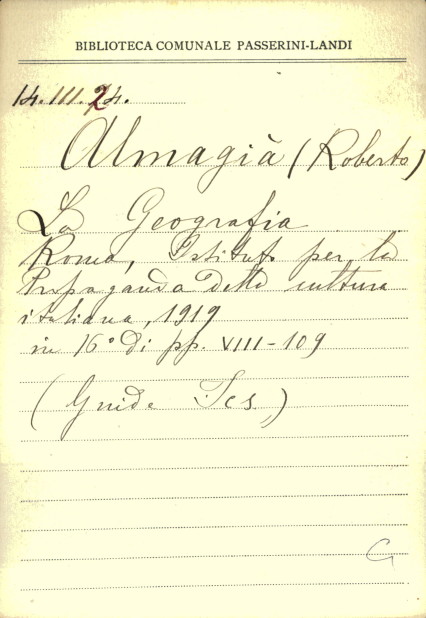 BIBLIOTECA COMUNALE PASSERINI-LANDI
14.III.24.
Almagià (Roberto)
La Geografia
Roma, Istituto per la
Propaganda della cultura
italiana, 1919
in 16° di pp. VIII-109
(Guide Ics)
G